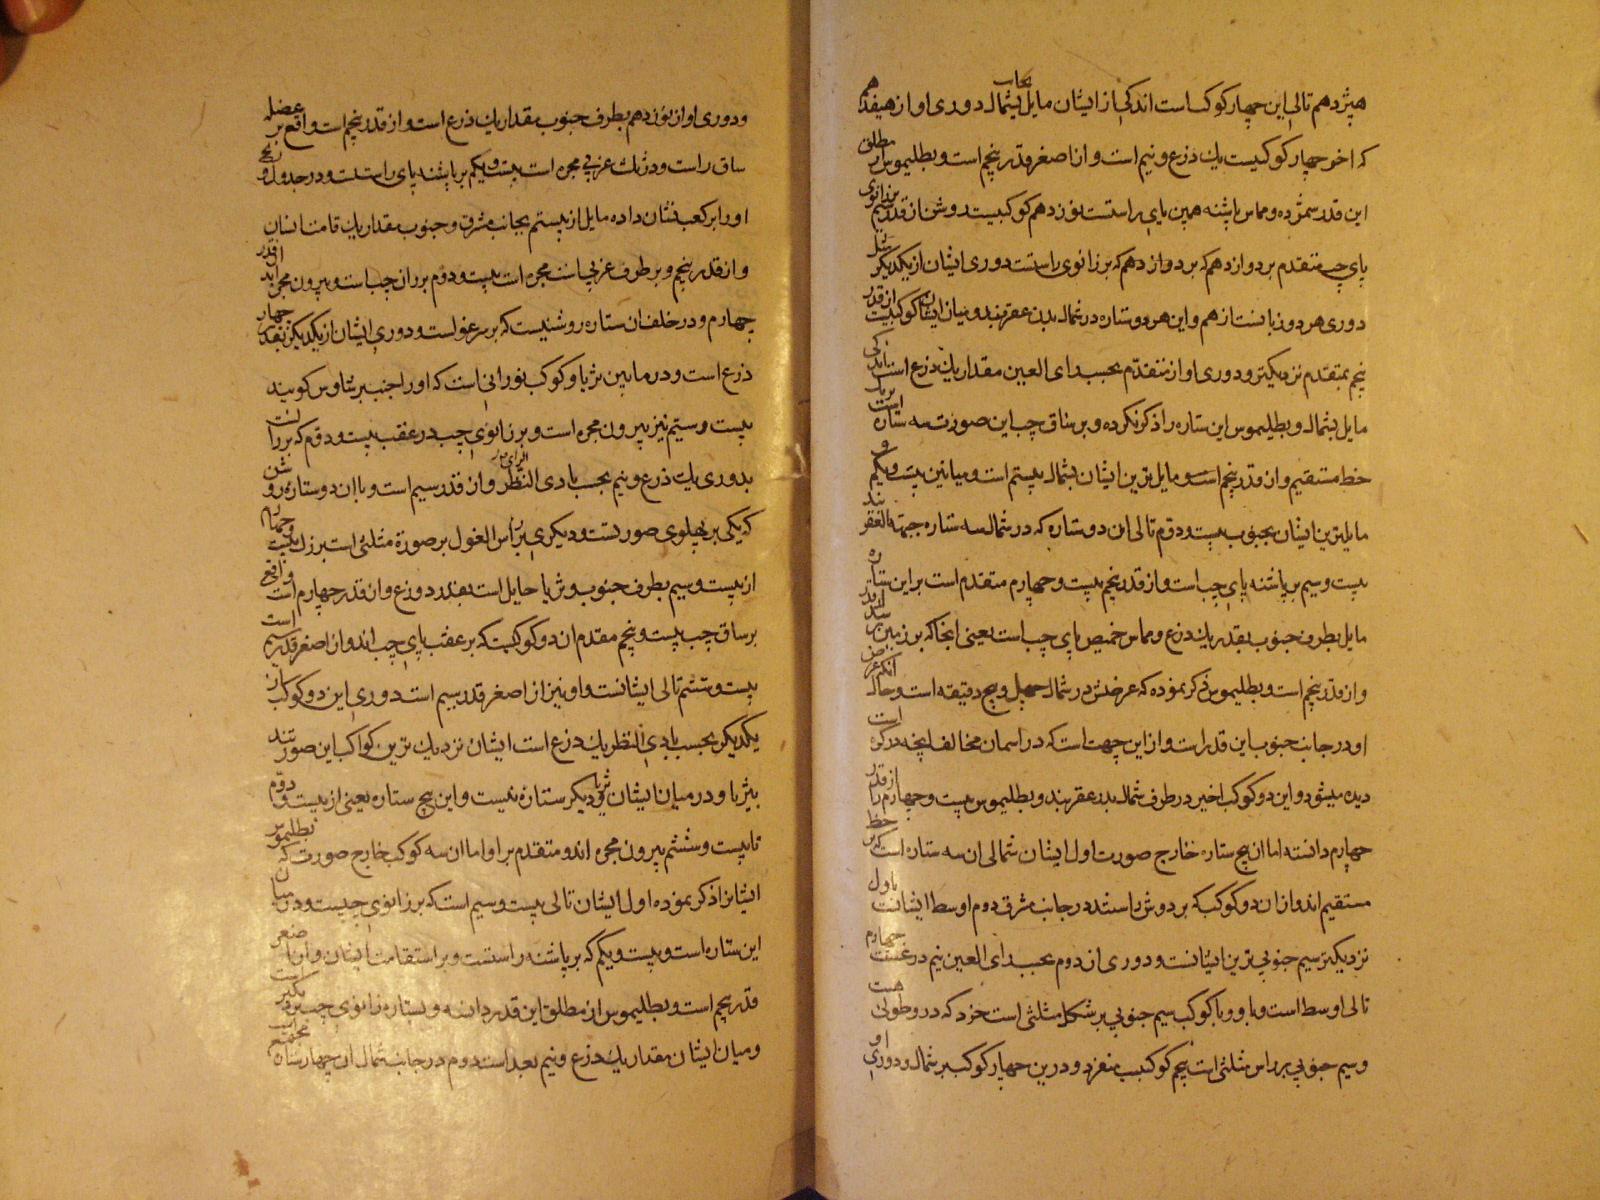 هیژدهم تالی این چهار کوکب است اندکی از ایشان مایل بجانب شمال دوری او از هیفدهم
که اخر چهار کوکبست یك ذرع و نیم است و از اصغر قدر پنجم است و بطلیموس از مطلق
این قدر شمرده و مماس پاشنه همین پای راستست نوزدهم کوکبیست روشن از قدر سیم بر زانوی
پای چپ متقدم بر دوازدهم که بر زانوی راستست دوری ایشان از یکدیکر مثل
دوری هر دو زبانست از هم و این هر دو ستاره در شمال بدن عقربند و میان ایشان کوکبیست از قدر
پنجم بمتقدم نزدیکتر و دوری او از متقدم بحسب رای العین مقدار یك ذرع است اندکی
مایل بشمال و بطلیموس این ستاره را ذکر نکرده و بر ساق چپ این صورت سه ستاره است بر یك
خط مستقیم و از قدر پنجم است و مایل ترین ایشان بشمال بیستم است و میانین بیست و یکم و
مایلترین ایشان بجنوب بیست و دوم تالی این دو ستاره که در شمال سه ستاره جبهة العقربند
بیست و سیم بر پاشنه پای چپ است و از قدر پنجم بیست و چهارم متقدم است بر این ستاره
مایل بطرف جنوب بقدر یك ذرع و مماس خمیص پای چپ است یعنی انجا که بر زمین نرسد
و از قدر پنجم است و بطلیموس ذکر نموده که عرضش در شمال چهل و پنج دقیقه است و حال انکه عرض
او در جانب جنوب این قدر است و از این جهت است که در اسمان مخالف انچه در کره است
دیده میشود و این دو کوکب اخیر در طرف شمال بدن عقربند و بطلیموس بیست و چهارم را از قدر
چهارم دانسته اما ان پنج ستاره خارج صورت اول ایشان شمالی ان سه ستاره است که بر خط
مستقیم اند و از ان دو کوکب که بر دوش راستند در جانب مشرق دوم اوسط ایشانست باول
نزدیکتر سیم جنوبی ترین ایشانست و دوری از دوم بحسب رای العین نیم ذرعست چهارم
تالی اوسط است و با او و با کوکب سیم جنوبی بر شکل مثلثی است خرد که در و طولی هست
و سیم جنوبی بر راس مثلثی است پنجم کوکبیست منفرد و درین چهار کوکب بر شمال و دوری او
و دوری او از نوزدهم بطرف جنوب مقدار یك ذرع است و از قدر پنجم است و واقع بر عضله
ساق راست و نزدیك غربی مجره است بیست و یکم بر پاشنه پای راستست و در جدول زیج
او را بر کعب نشان داده مایل از بیستم بجانب مشرق و جنوب مقدار یك قامت انسان
و از قدر پنجم و بر طرف غربی است مجره است بیست و دوم بر ران چپ است و بیرون مجره اند از قدر
چهارم و در خلف ان ستاره روشنیست که بر سر غولست و دوری ایشان از یکدیکر بقدر چهار
ذرع است و در مابین ثریا و کوکب نورانی است که او را جنب برشاوس کویند
بیست و سیم نیز بیرون مجره است و بر زانوی چپ در عقب بیست و دوم که بر رانست
بدوری یك ذرع و نیم بحسب بادی النظر و از قدر سیم است و با ان دو ستاره روشن
که یکی بر پهلوی صورتست و دیکری بر راس الغول بر صورة مثلثی است بزرك بیست و چهارم
از بیست و سیم بطرف جنوب و ثریا حایل است بقدر دو ذرع و از قدر چهارم است واقع
بر ساق چپ بیست و پنجم مقدم ان دو کوکبست که بر عقب پای چپ اند و از اصغر قدر سیم است
بیست و ششم تالی ایشانست و او نیز از اصغر قدر سیم است دوری این دو کوکب از
یکدیکر بحسب بادی النظر یك ذرع است ایشان نزدیك ترین کواکب این صورتند
بثریا و در میان ایشان و ثریا دیکر ستاره نیست و این پنج ستاره یعنی از بیست و دوم
تا بیست و ششم بیرون مجره اند و متقدم بر او اما ان سه کوکب خارج صورت که بطلیموس
ایشانرا ذکر نموده اول ایشان تالی بیست و سیم است که بر زانوی چپست و در میان
این ستاره است و بیست و یکم که بر پاشنه راستست و بر استقامت ایشان و از اصغر
قدر پنجم است و بطلیموس از مطلق این قدر دانسته و بستاره زانوی چپ نزدیکتر است
و میان ایشان مقدار یك ذرع و نیم بعد است دوم در جانب شمال ان چهار ستاره مجتمع